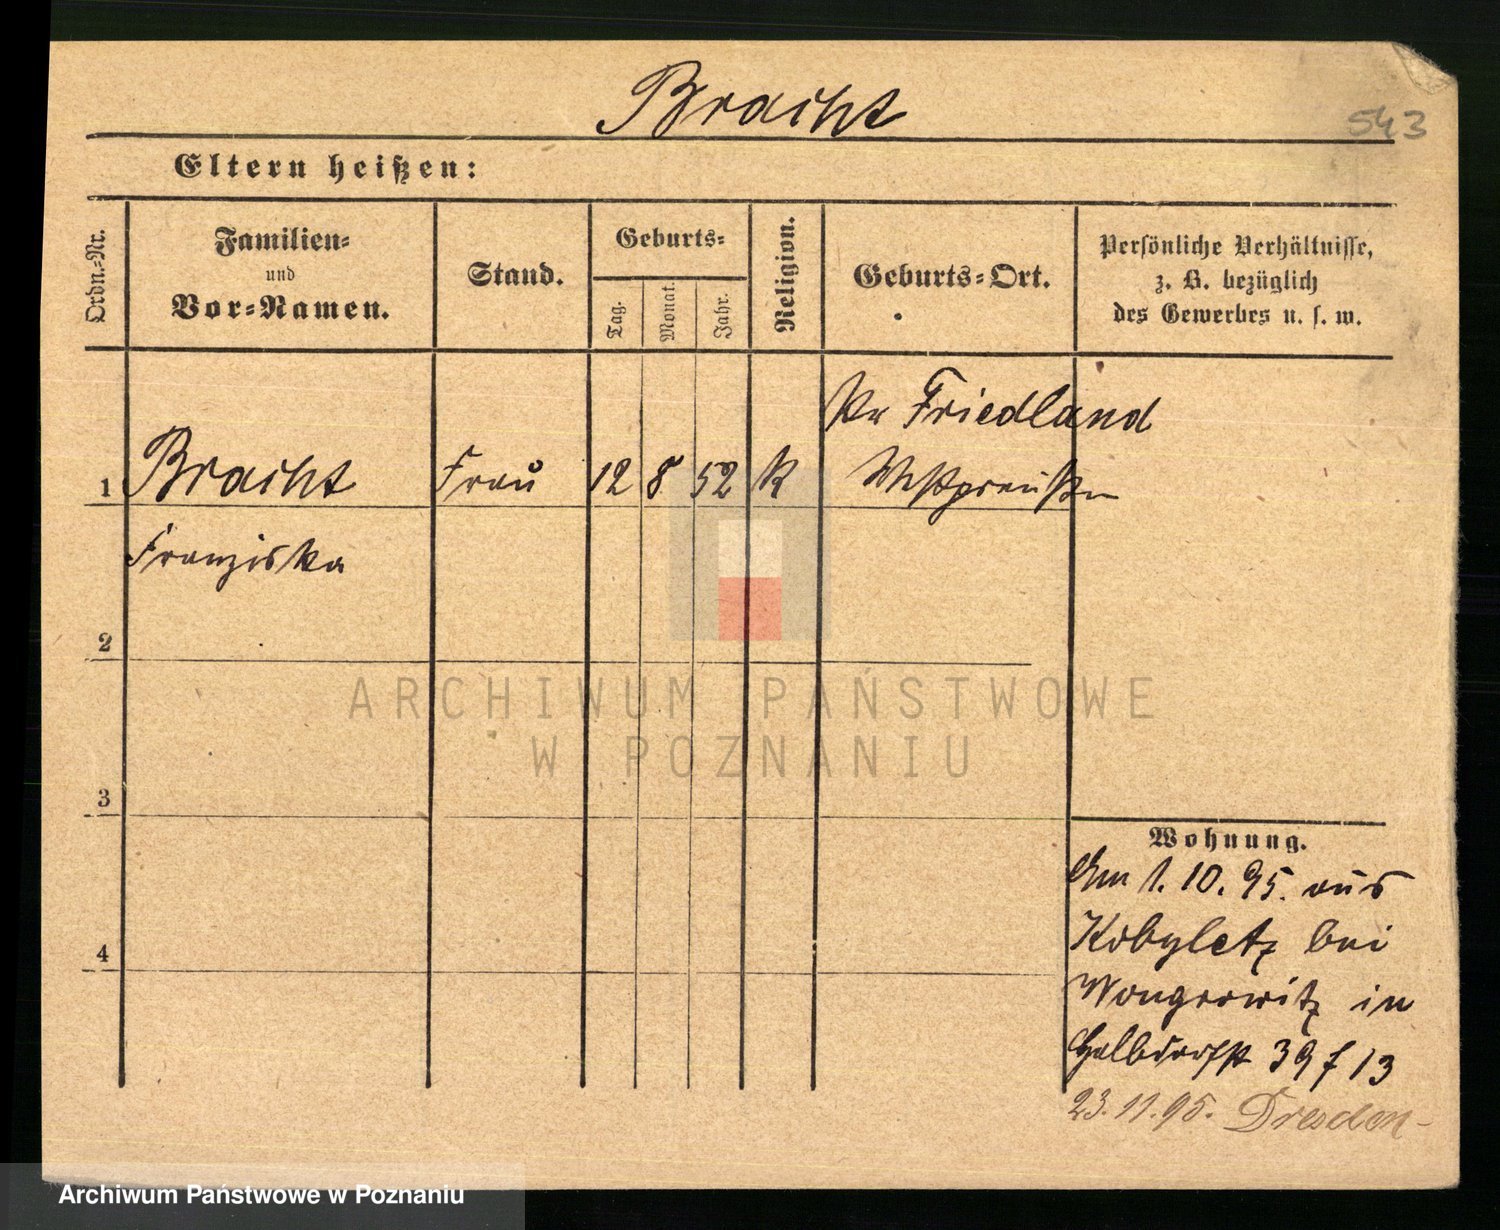 Bracht
543
Eltern heißen:
Ordn.-Nr.
Familien-
und
Vor-Namen.
Stand.
Geburts-
Tag.
Monat.
Jahr.
Religion.
Geburts-Ort.
Persönliche Verhältnisse,
z. B. bezüglich
des Gewerbes u. s. w.
Pr Friedland
1 Bracht Frau 12 8 52 K Westpreußen
Franziska
2
3
4
Wohnung.
Am 1. 10. 95. aus
Kobyletz bei
Wongrowitz in
Halbdorfst 39 f 13
23. 11. 95. Dresden-
ARCHIWUM PAŃSTWOWE
W POZNANIU
Archiwum Państwowe w Poznaniu